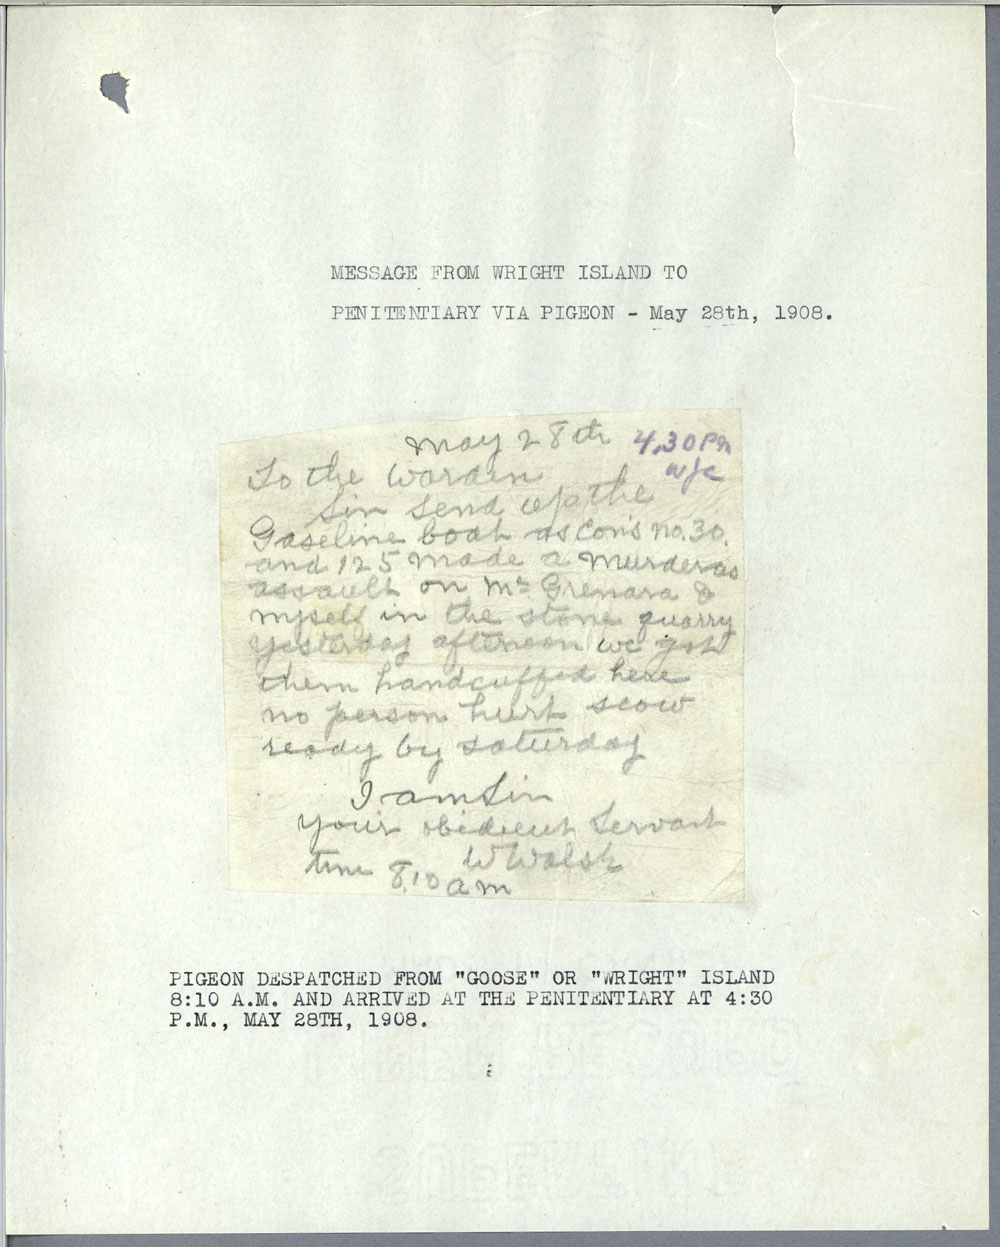 MESSAGE FROM WRIGHT ISLAND TO
PENITENTIARY VIA PIGEON - May 28th, 1908.
May 28th 4.30 Pm
WJC
To the Warden
Sir send up the
Gaseline boat as Cons no. 30.
and 125 made a Murderas
assault on Mr Grenara &
myself in the stone quarry
yesterday afternoon we got
them handcuffed here
no person hurt scow
ready by saturday
I am Sir
your obedient Servant
W Walsh
time 8.10 am
PIGEON DESPATCHED FROM "GOOSE" OR "WRIGHT" ISLAND
8:10 A.M. AND ARRIVED AT THE PENITENTIARY AT 4:30
P.M., MAY 28TH, 1908.